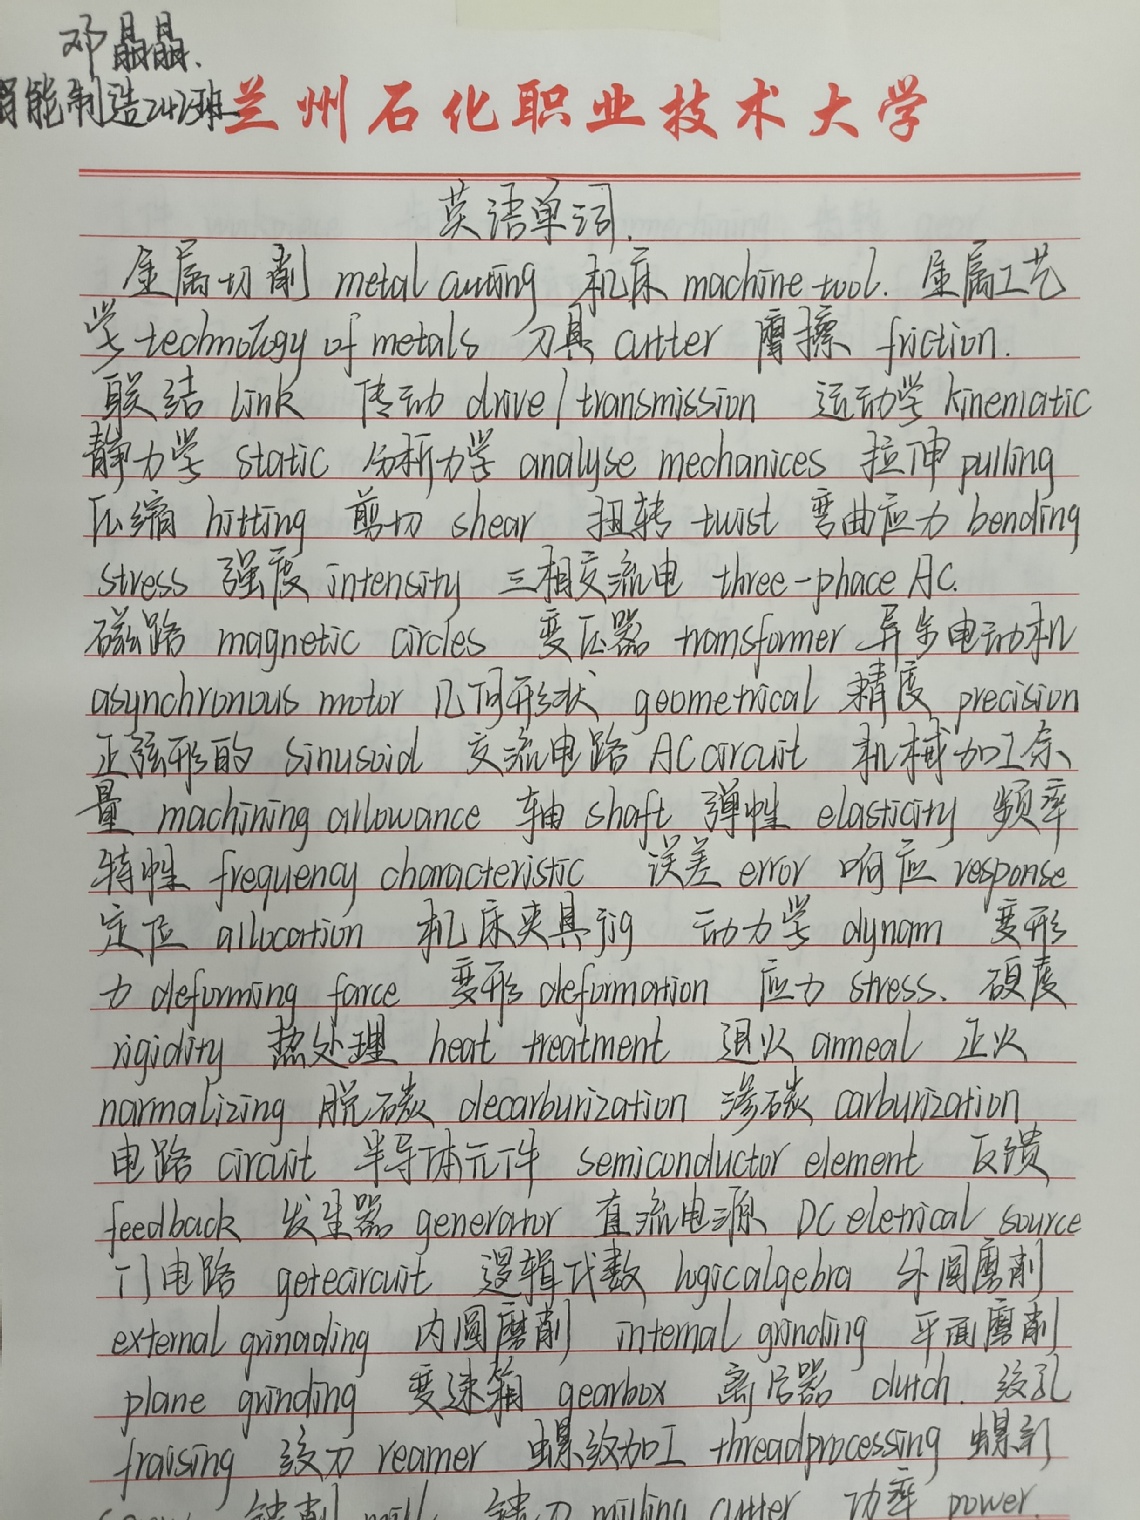 邓晶晶.
智能制造242班
兰州石化职业技术大学
英语单词.
金属切削 metal cutting 机床 machine tool. 金属工艺
学 technology of metals 刀具 cutter 摩擦 friction.
联结 link 传动 drive/transmission 运动学 kinematic
静力学 static 分析力学 analyse mechanices 拉伸 pulling
压缩 hitting 剪切 shear 扭转 twist 弯曲应力 bending
stress 强度 intensity 三相交流电 three-phace AC.
磁路 magnetic circles 变压器 transformer 异步电动机
asynchronous motor 几何形状 geometrical 精度 precision
正弦形的 sinusoid 交流电路 AC circuit 机械加工余
量 machining allowance 轴 shaft 弹性 elasticity 频率
特性 frequency characteristic 误差 error 响应 response
定位 allocation 机床夹具 jig 动力学 dynam 变形
力 deforming force 变形 deformation 应力 stress. 硬度
rigidity 热处理 heat treatment 退火 anneal 正火
normalizing 脱碳 decarburization 渗碳 carburization
电路 circuit 半导体元件 semiconductor element 反馈
feedback 发生器 generator 直流电源 DC eletrical source
门电路 getecircuit 逻辑代数 logicalgebra 外圆磨削
external grinading 内圆磨削 internal grinding 平面磨削
plane grinding 变速箱 gearbox 离合器 clutch. 绞孔
fraising 绞刀 reamer 螺纹加工 threadprocessing 螺钉
铣削 mill 铣刀 milling cutter 功率 power.